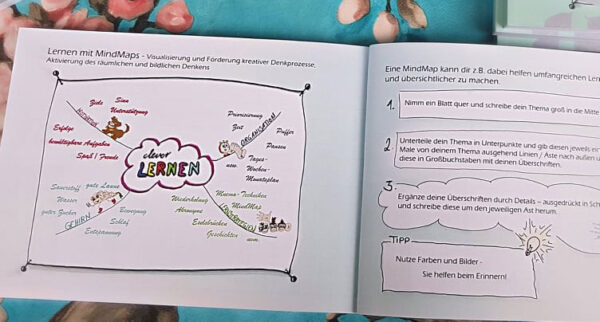 Lernen mit MindMaps - Visualisierung und Förderung kreativer Denkprozesse,
Aktivierung des räumlichen und bildlichen Denkens
Ziele
Sinn
Unterstützung
MOTIVATION
Erfolge
bewältigbare Aufgaben
Spaß / Freude
Priorisierung
Zeit
ORGANISATION
Puffer
Pausen
Tages-
Wochen-
Monatsplan
usw.
clever
LERNEN
Sauerstoff
gute Laune
Wasser
guter Zucker
GEHIRN
Bewegung
Schlaf
Entspannung
Mnemo-Techniken
Wiederholung
MindMap
Akronyme
Eselsbrücken
Geschichten
usw.
Eine MindMap kann dir z.B. dabei helfen umfangreichen Ler
und übersichtlicher zu machen.
1. Nimm ein Blatt quer und schreibe dein Thema groß in die Mitte
2. Unterteile dein Thema in Unterpunkte und gib diesen jeweils ein
Male von deinem Thema ausgehend Linien / Äste nach außen u
diese in Großbuchstaben mit deinen Überschriften.
3.
Ergänze deine Überschriften durch Details - ausgedrückt in Sch
und schreibe diese um den jeweiligen Ast herum.
TIPP
Nutze Farben und Bilder -
Sie helfen beim Erinnern!